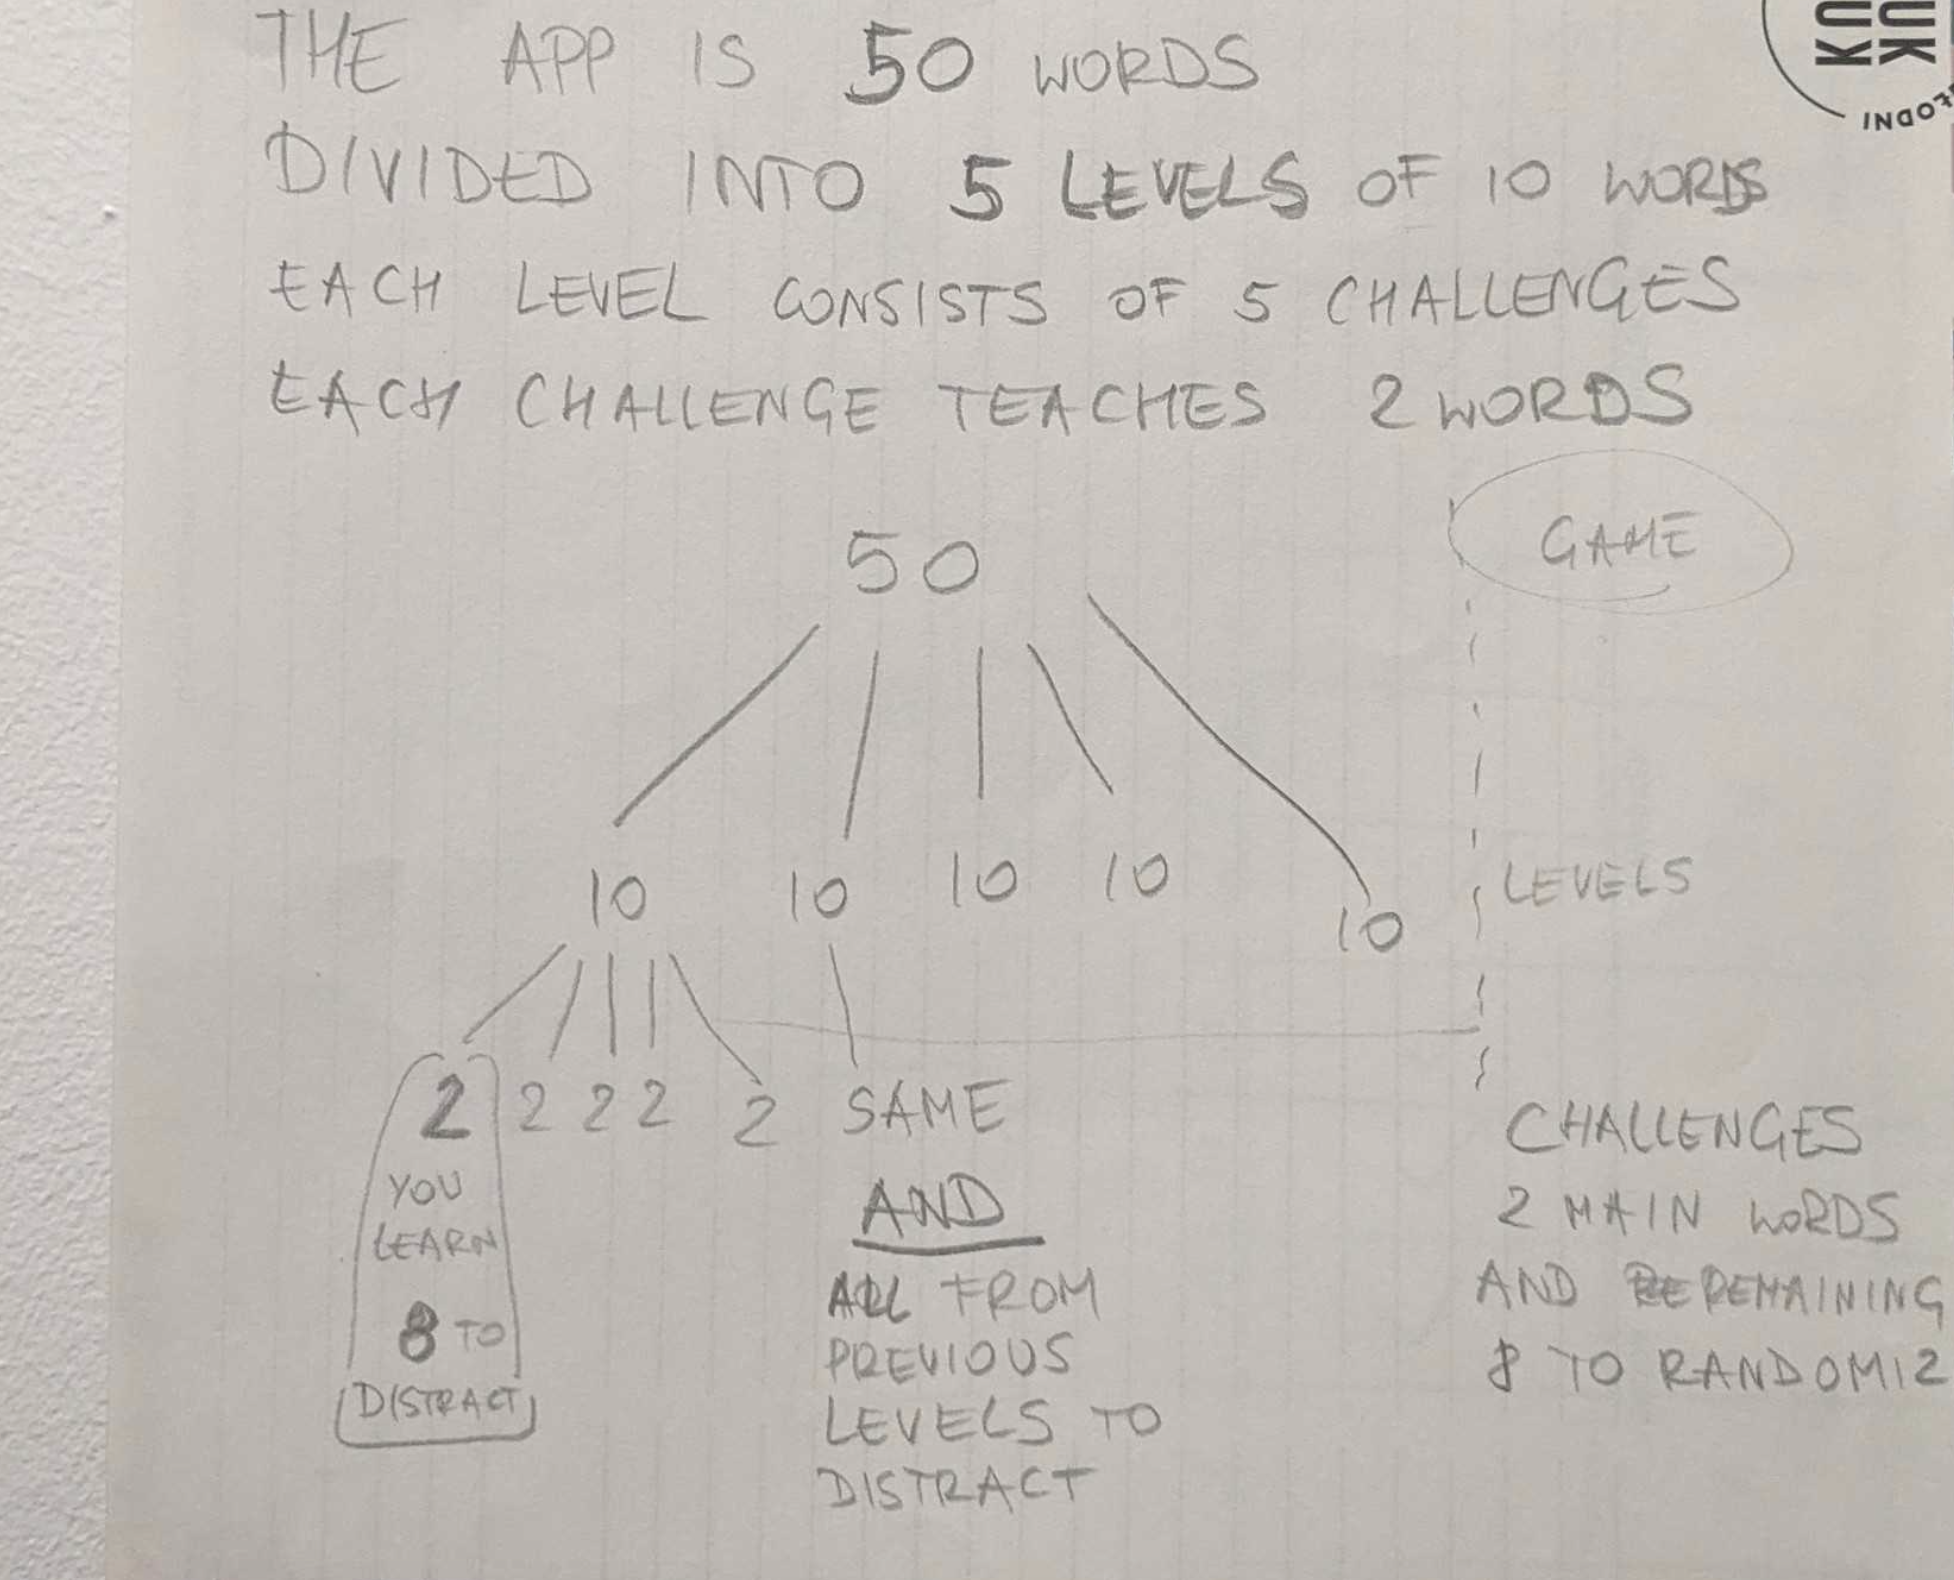 THE APP IS 50 WORDS
DIVIDED INTO 5 LEVELS OF 10 WORDS
EACH LEVEL CONSISTS OF 5 CHALLENGES
EACH CHALLENGE TEACHES 2 WORDS
50
GAME
10 10 10 10 10
LEVELS
2 2 2 2 2 SAME
YOU
LEARN
8 TO
DISTRACT
AND
ALL FROM
PREVIOUS
LEVELS TO
DISTRACT
CHALLENGES
2 MAIN WORDS
AND REMAINING
8 TO RANDOMIZ
UK
UK